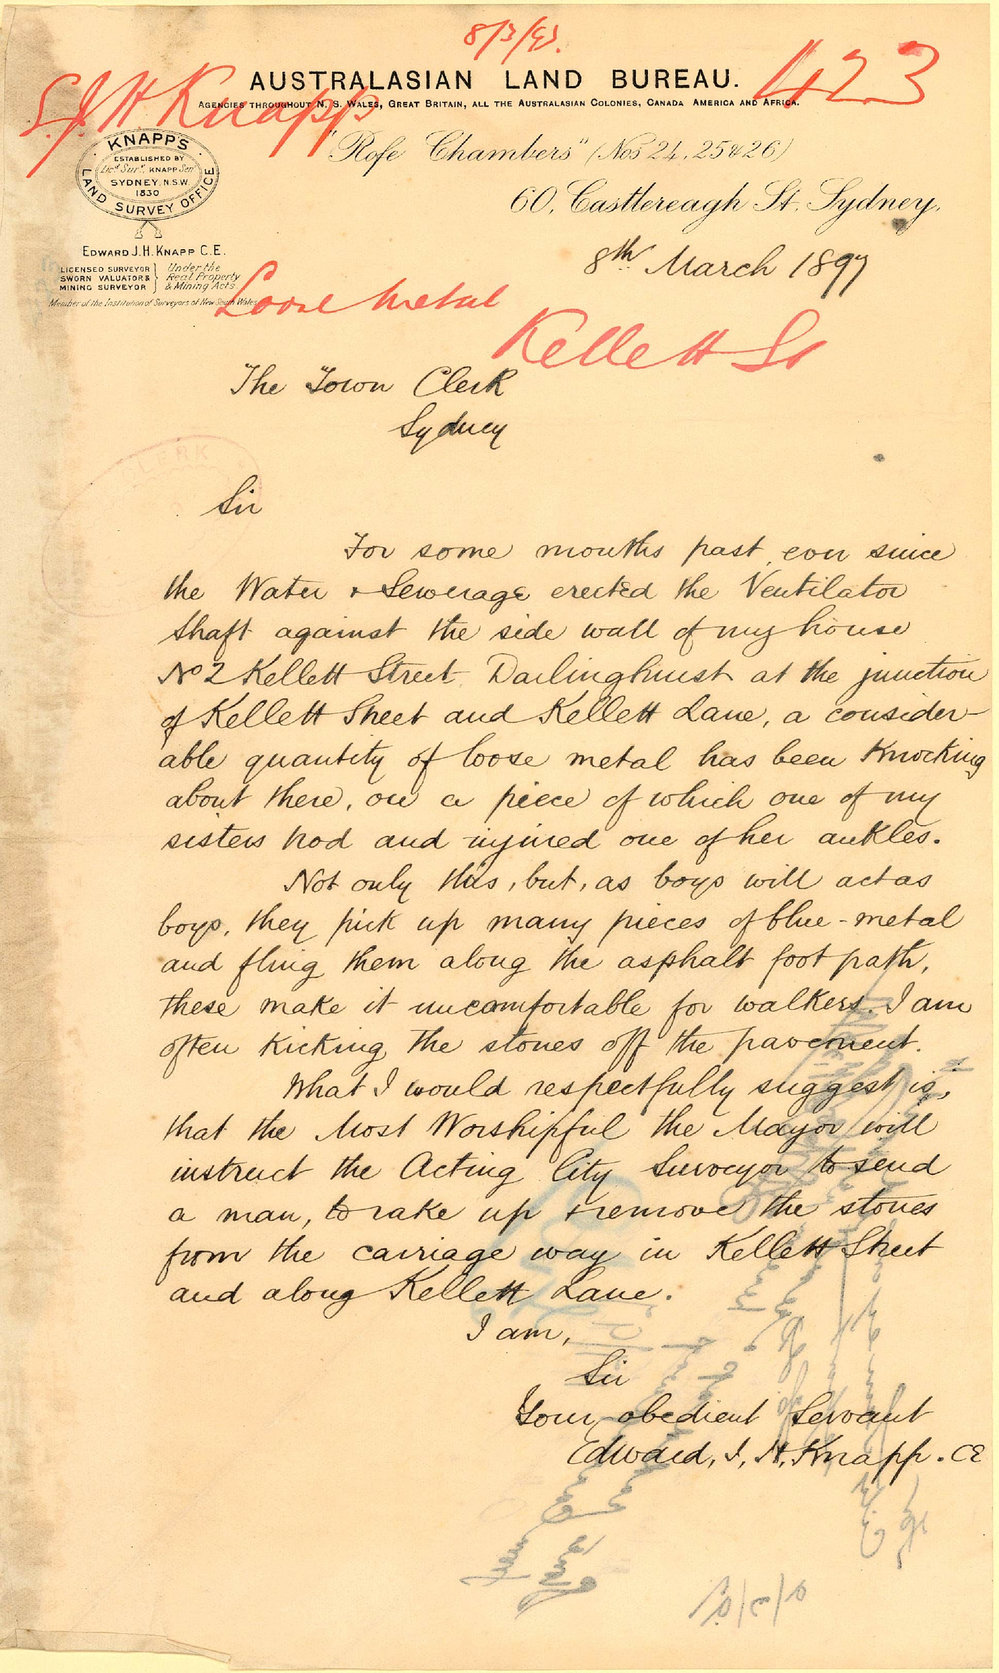 8/3/97.
AUSTRALASIAN LAND BUREAU.
423
E. J. H Knapp
AGENCIES THROUGHOUT N. S. WALES, GREAT BRITAIN, ALL THE AUSTRALASIAN COLONIES, CANADA AMERICA AND AFRICA.
"Rofe Chambers" (Nos 24, 25 & 26)
60, Castlereagh St. Sydney,
KNAPP'S
ESTABLISHED BY
Licd. Surr. KNAPP Senr
SYDNEY, N.S.W.
1830
LAND SURVEY OFFICE
EDWARD J. H. KNAPP C.E.
LICENSED SURVEYOR
SWORN VALUATOR &
MINING SURVEYOR
Under the
Real Property
& Mining Acts
Member of the Institution of Surveyors of New South Wales
8th March 1897
Loose metal
Kellett St
The Town Clerk
Sydney
CLERK
Sir
For some months past, ever since
the Water & Sewerage erected the Ventilator
Shaft against the side wall of my house
No 2 Kellett Street Darlinghurst at the junction
of Kellett Street and Kellett Lane, a consider-
able quantity of loose metal has been Knocking
about there, on a piece of which one of my
sisters trod and injured one of her ankles.
Not only this, but, as boys will act as
boys, they pick up many pieces of blue-metal
and fling them along the asphalt foot path,
these make it uncomfortable for walkers. I am
often kicking the stones off the pavement.
What I would respectfully suggest is,
that the Most Worshipful the Mayor will
instruct the Acting City Surveyor to send
a man, to rake up & remove the stones
from the carriage way in Kellett Street
and along Kellett Lane.
I am,
Sir
Your obedient Servant
Edward, J, H, Knapp. CE